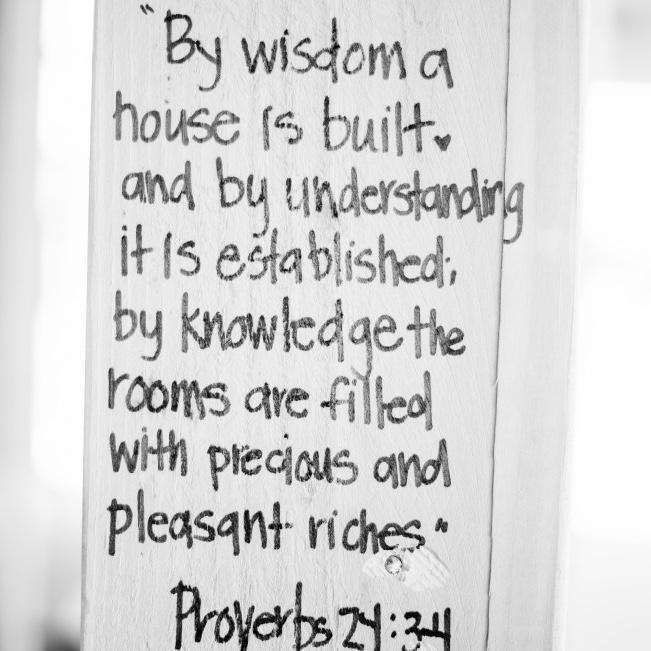 "By wisdom a
house is built♥
and by understanding
it is established;
by knowledge the
rooms are filled
with precious and
pleasant riches"
Proverbs 24:3-4